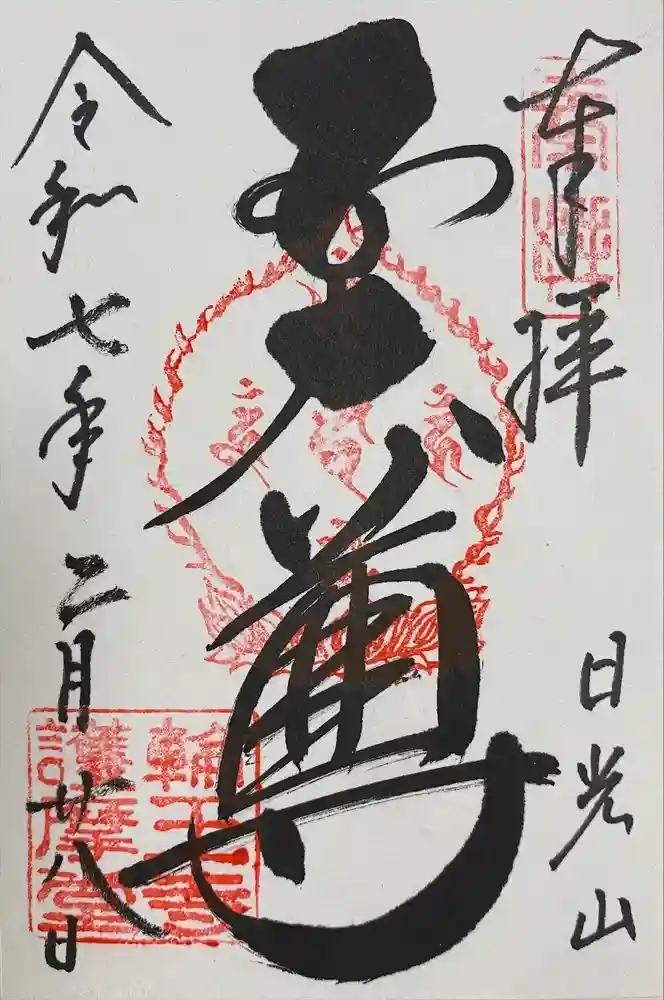 奉拝
日光山
五大尊
令和七年二月廿八日
輪王寺
護摩堂